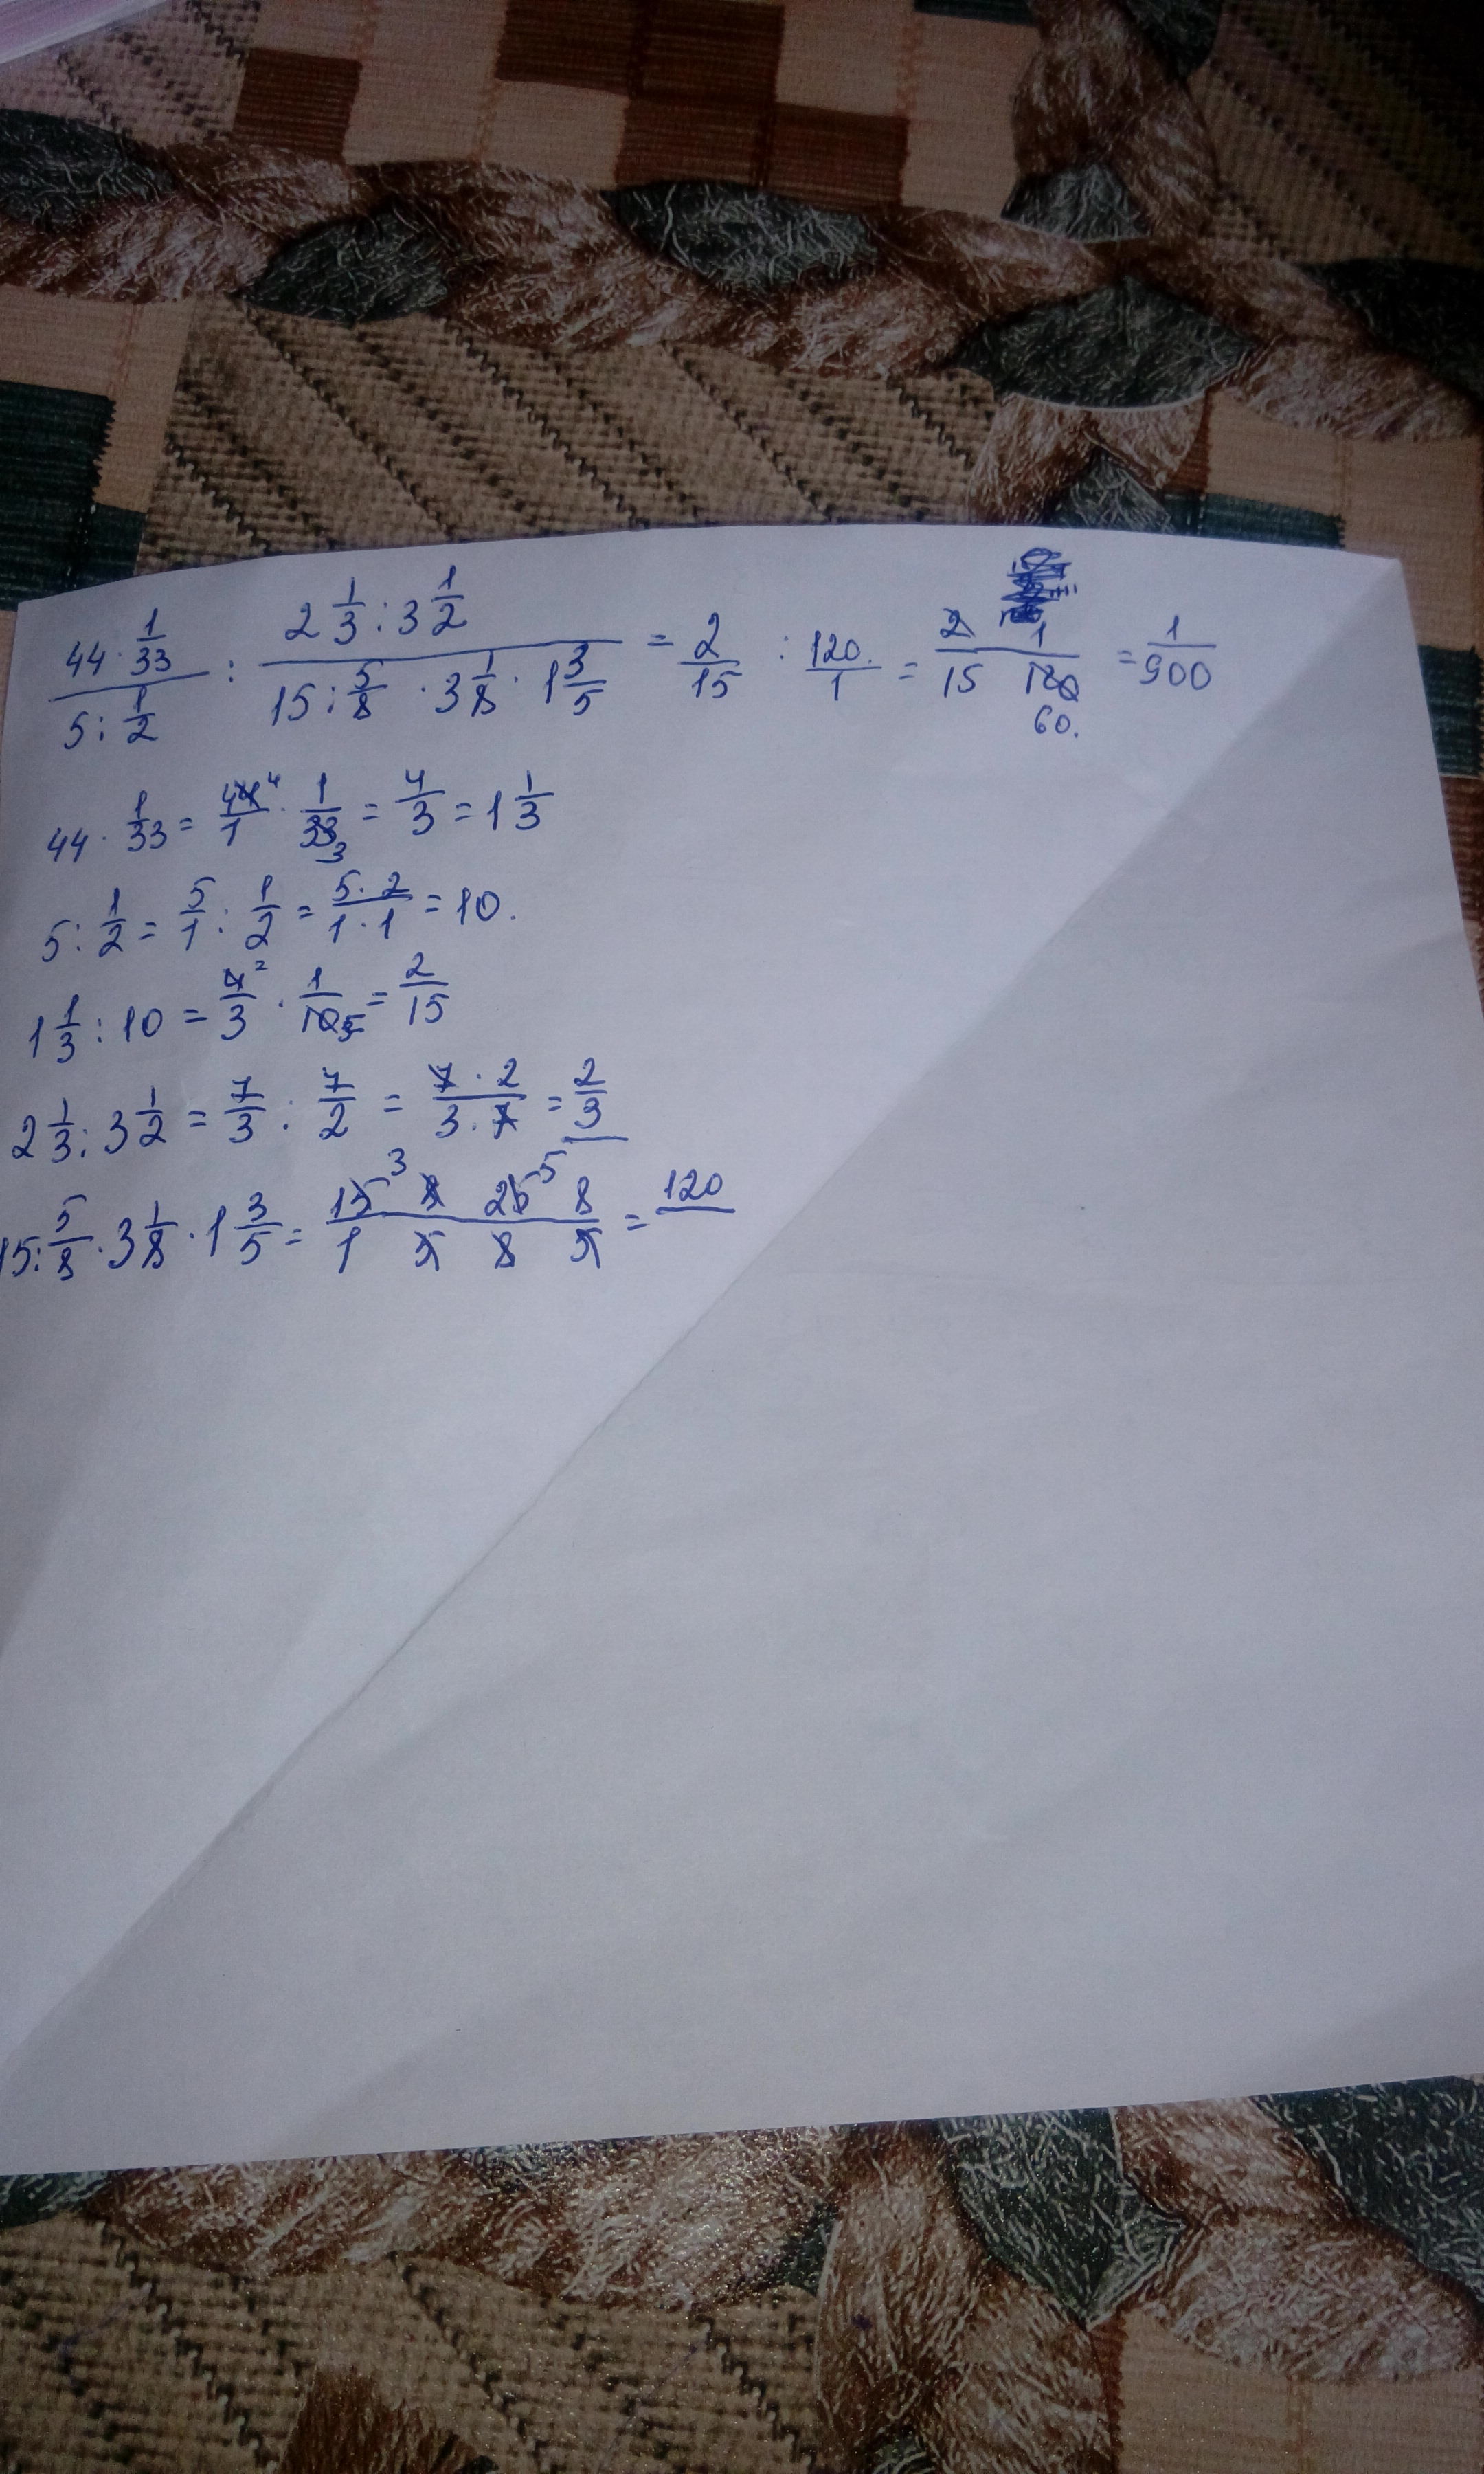 (44 · 1/33)/(5 : 1/2) : (2 1/3 : 3 1/2)/(15 : 5/8 · 3 1/8 · 1 3/5) = 2/15 : 120./1 = 2/15 1/120 60. = 1/900
44 · 1/33 = 44 4/1 · 1/33 3 = 4/3 = 1 1/3
5 : 1/2 = 5/1 : 1/2 = (5 · 2)/(1 · 1) = 10.
1 1/3 : 10 = 4 2/3 · 1/10 5 = 2/15
2 1/3 : 3 1/2 = 7/3 : 7/2 = (7 · 2)/(3 · 7) = 2/3
15 : 5/8 · 3 1/8 · 1 3/5 = (15 3 8 25 5 8)/(1 5 8 5) = 120